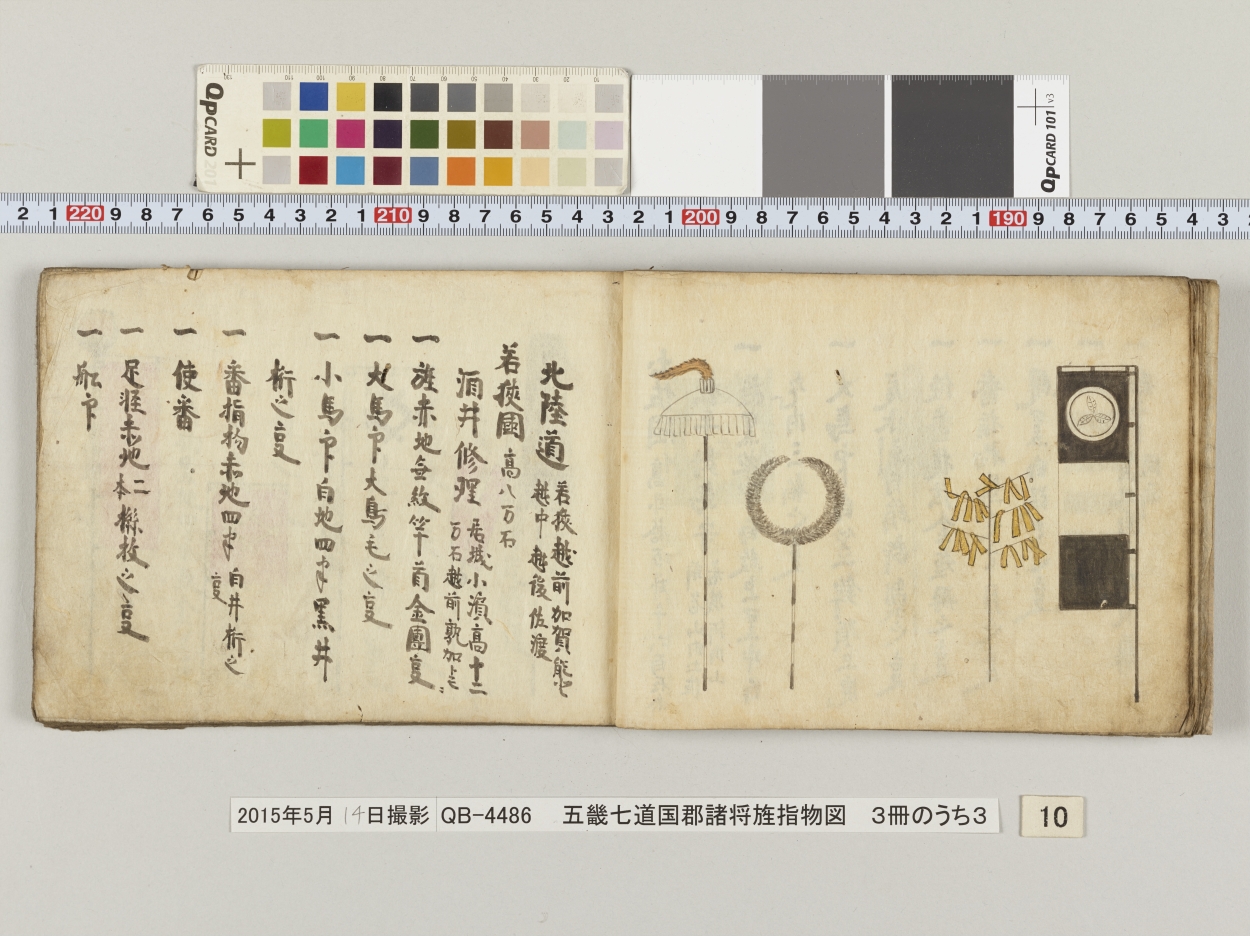 QPCARD 201
QPCARD 101 v3
2 1 220 9 8 7 6 5 4 3 2 1 210 9 8 7 6 5 4 3 2 1 200 9 8 7 6 5 4 3 2 1 190 9 8 7 6 5 4 3
北陸道 若狭越前加賀能登
越中越後佐渡
若狭國 高八万石
酒井修理 居城小濱高十二
万石越前敦加トモニ
一 旌赤地無紋竿首金團㕝
一 大馬印大鳥毛之㕝
一 小馬印白地四半黒井
桁之㕝
一 番指物赤地四半白井桁之
㕝
一 使番
一 足軽赤地二
本撓枝之㕝
一 船印
2015年5月14日撮影 QB-4486 五畿七道国郡諸将旌指物図 3冊のうち3
10